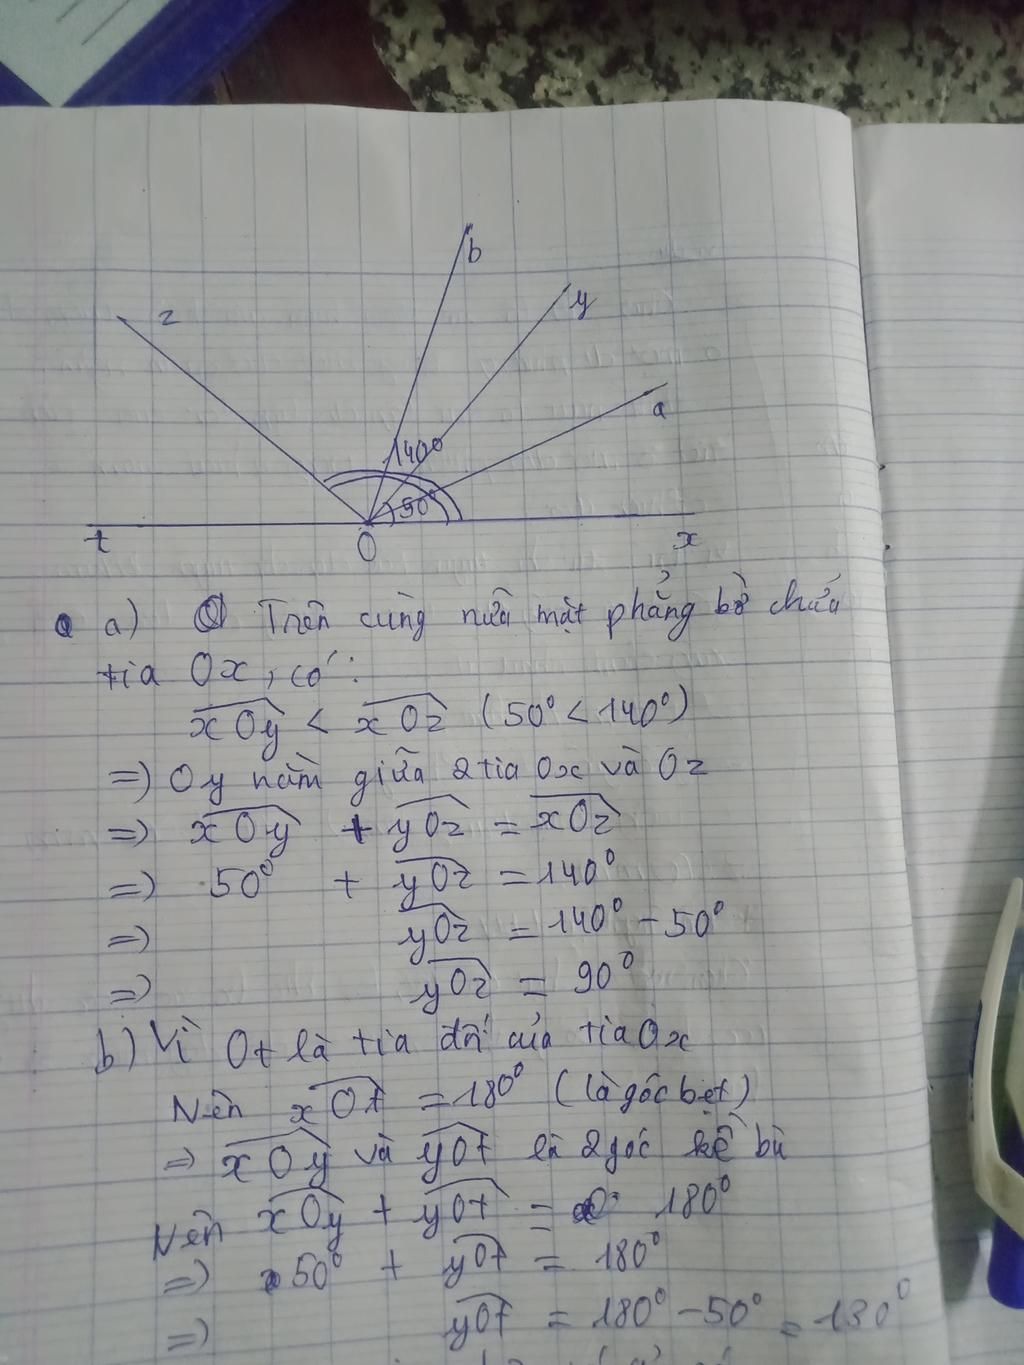 b
z
y
a
140°
50°
t
O
x
a) Trên cùng nửa mặt phẳng bờ chứa
tia Ox, có:
xOy < xOz (50° < 140°)
=) Oy nằm giữa 2 tia Ox và Oz
=) xOy + yOz = xOz
=) 50° + yOz = 140°
=) yOz = 140° - 50°
=) yOz = 90°
b) Vì Ot là tia đối của tia Ox
Nên xOt = 180° (là góc bẹt)
=> xOy và yOt là 2 góc kề bù
Nên xOy + yOt = 180°
=) 50° + yOt = 180°
=) yOt = 180° - 50° = 130°